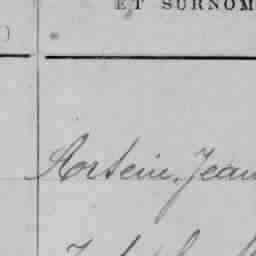 ET SURNOM
Hortein, Jean